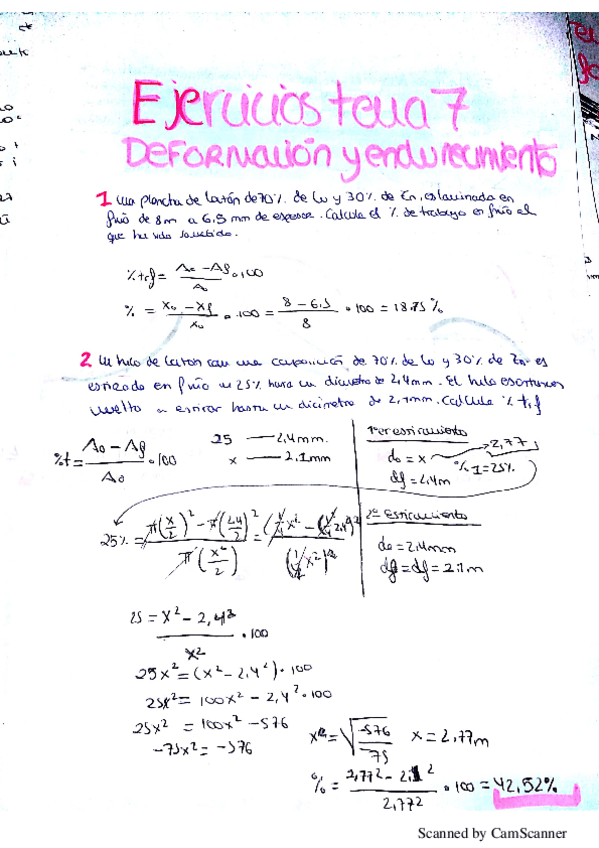 Ejercicios tema 7
DEFORMACIÓN y endurecimiento
1 Una plancha de latón de 70% de Cu y 30% de Zn, es laminada en
frío de 8m a 6,5 mm de espesor. Calcula el % de trabajo en frío al
que ha sido sometido.
%trf = Ao - Af / Ao · 100
% = xo - xf / xo · 100 = 8 - 6,5 / 8 · 100 = 18.75%
2 Un hilo de latón con una composición de 70% de Cu y 30% de Zn es
estirado en frío un 25% hasta un diámetro de 2,4mm. El hilo es entonces
vuelto a estirar hasta un diámetro de 2,1mm. Calcula % trf
%t = Ao - Af / Ao · 100
25 — 2,4mm.
x — 2.1mm
1er estiramiento
do = x 2,77
df = 2,4m %1=25%
25% = π(x/2)² - π(2,4/2)² / π(x²/2) = (1/4 x² - (1/4 2,4²)) / (1/4 x²)
2º Estiramiento
do = 2,4mm
df = df = 2.1m
25 = x² - 2,4² / x² · 100
25x² = (x² - 2,4²) · 100
25x² = 100x² - 2,4² · 100
25x² = 100x² - 576
-75x² = -576
x = √-576 / -75 x = 2,77m
% = 2,77² - 2,1² / 2,77² · 100 = 42,52%
Scanned by CamScanner